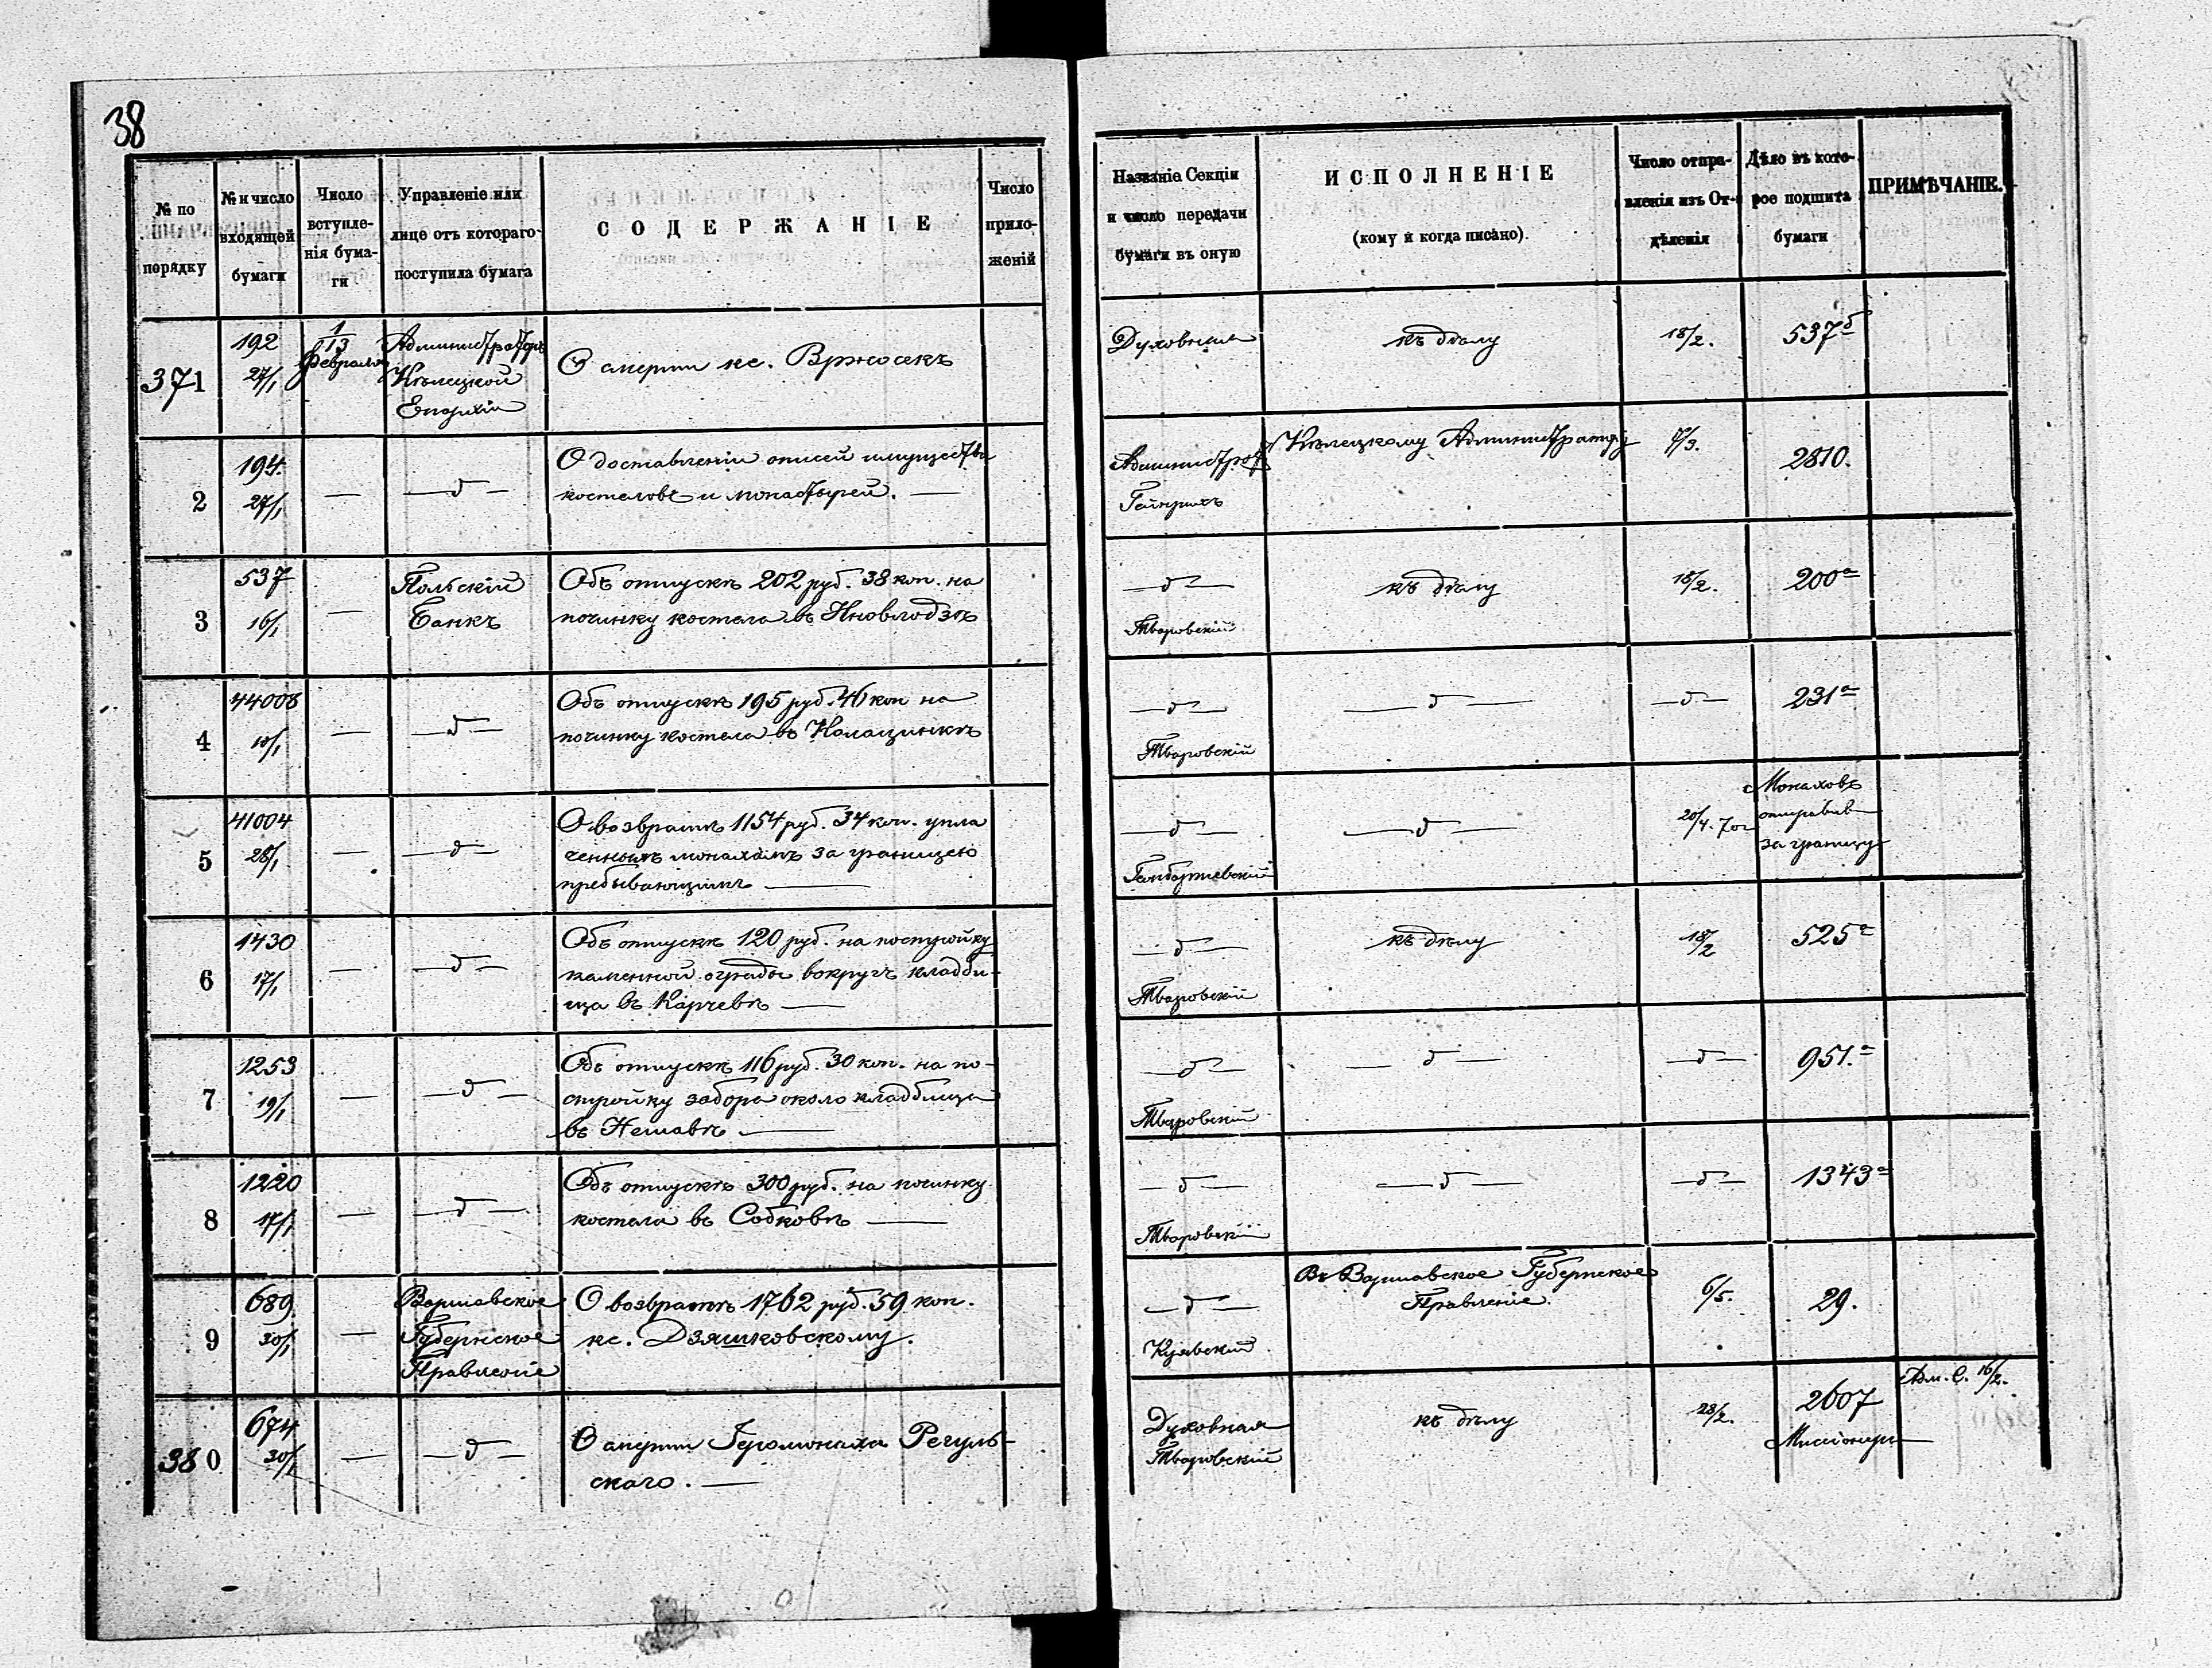 38
№ по порядку
№ и число входящей бумаги
Число вступле-нія бума-ги
Управленіе или лице отъ котораго поступила бумага
СОДЕРЖАНІЕ
Число прило-женій
Названіе Секціи и число передачи бумаги въ оную
ИСПОЛНЕНІЕ
(кому и когда писано).
Число отпра-вленія изъ От-дѣленія
Дѣло въ кото-рое подшита бумаги
ПРИМѢЧАНІЕ.
371
192
27/1
1/13 Февраля
Администраторъ
Кѣлецкой
Епархіи
О смерти кс. Вржосекъ
Духовная
къ дѣлу
18/2.
537б
2
194
27/1
—
—д—
О доставленіи описей имущества
костеловъ и монастырей. —
Гейнрихъ
Кѣлецкому
/3.
2810.
3
537
16/1
—
Польскій
Банкъ
Объ отпускѣ 202 руб. 38 коп. на
починку костела въ Иновлодзѣ
—д—
Тваровскій
къ дѣлу
18/2.
200а
4
44008
10/1
—
—д—
Объ отпускѣ 195 руб. 46 коп на
починку костела въ
—д—
Тваровскій
—д—
—д—
231а
5
41004
28/1
—
—д—
О возвратѣ 1154 руб. 34 коп. упла
ченныхъ монахамъ за границею
пребывающимъ —
—д—
—д—
20/4.
Монаховъ
отправив
за границу
6
1430
17/1
—
—д—
Объ отпускѣ 120 руб. на постройку
каменной ограды вокругъ кладби-
ща въ Карчевѣ —
—д—
Тваровскій
къ дѣлу
18/2
525а
7
1253
19/1
—
—д—
Объ отпускѣ 116 руб. 30 коп. на по-
стройку забора около кладбища
въ Нешавѣ —
—д—
Тваровскій
—д—
—д—
951.а
8
1220
17/1
—
—д—
Объ отпускѣ 300 руб. на починку
костела въ Собковѣ —
—д—
Тваровскій
—д—
—д—
1343а
9
689
30/1
—
Варшавское
Губернское
Правленіе
О возвратѣ 1762 руб. 59 коп.
кс. Дзяшковскому.
—д—
Куявскій
Въ Варшавское Губернское
Правленіе.
6/5.
29.
380
674
30/1
—
—д—
О смерти Іеромонаха Регуль-
скаго. —
Духовная
Тваровскій
къ дѣлу
28/2.
2607
Миссіонеры
Адм. С. 16/2.